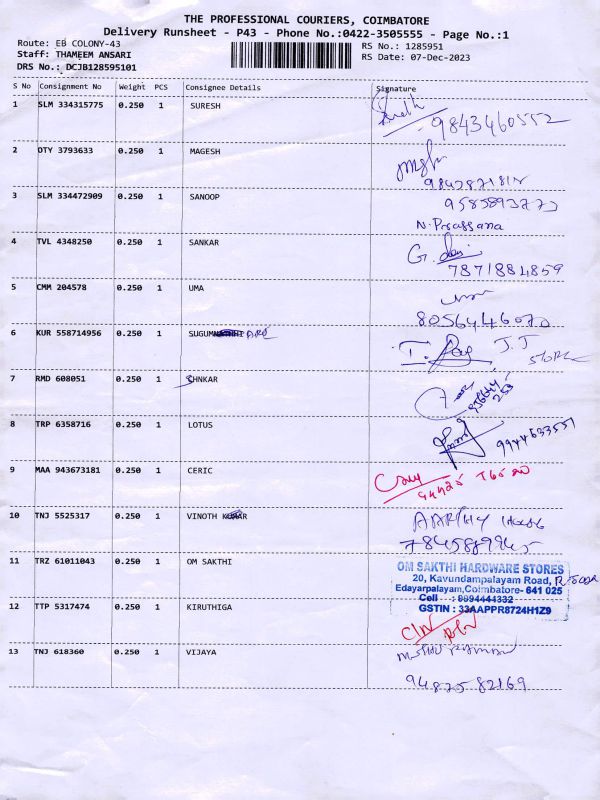 THE PROFESSIONAL COURIERS, COIMBATORE
Delivery Runsheet - P43 - Phone No.:0422-3505555 - Page No.:1
Route: EB COLONY-43
RS No.: 1285951
Staff: THAMEEM ANSARI
RS Date: 07-Dec-2023
DRS No.: DCJB128595101
S No Consignment No Weight PCS Consignee Details Signature
1 SLM 334315775 0.250 1 SURESH
9843460552
2 OTY 3793633 0.250 1 MAGESH
3 SLM 334472909 0.250 1 SANOOP
N. Prassana
4 TVL 4348250 0.250 1 SANKAR
7871884859
5 CMM 204578 0.250 1 UMA
8056446070
6 KUR 558714956 0.250 1
J.J
STORE
7 RMD 608051 0.250 1 SHNKAR
8 TRP 6358716 0.250 1 LOTUS
9944633551
9 MAA 943673181 0.250 1 CERIC
10 TNJ 5525317 0.250 1 VINOTH KUMAR
AARTHY
11 TRZ 61011043 0.250 1 OM SAKTHI
OM SAKTHI HARDWARE STORES
20, Kavundampalayam Road,
Edayarpalayam, Coimbatore- 641 025
Cell : 9894444332
GSTIN : 33AAPPR8724H1Z9
12 TTP 5317474 0.250 1 KIRUTHIGA
13 TNJ 618360 0.250 1 VIJAYA
94875 82169